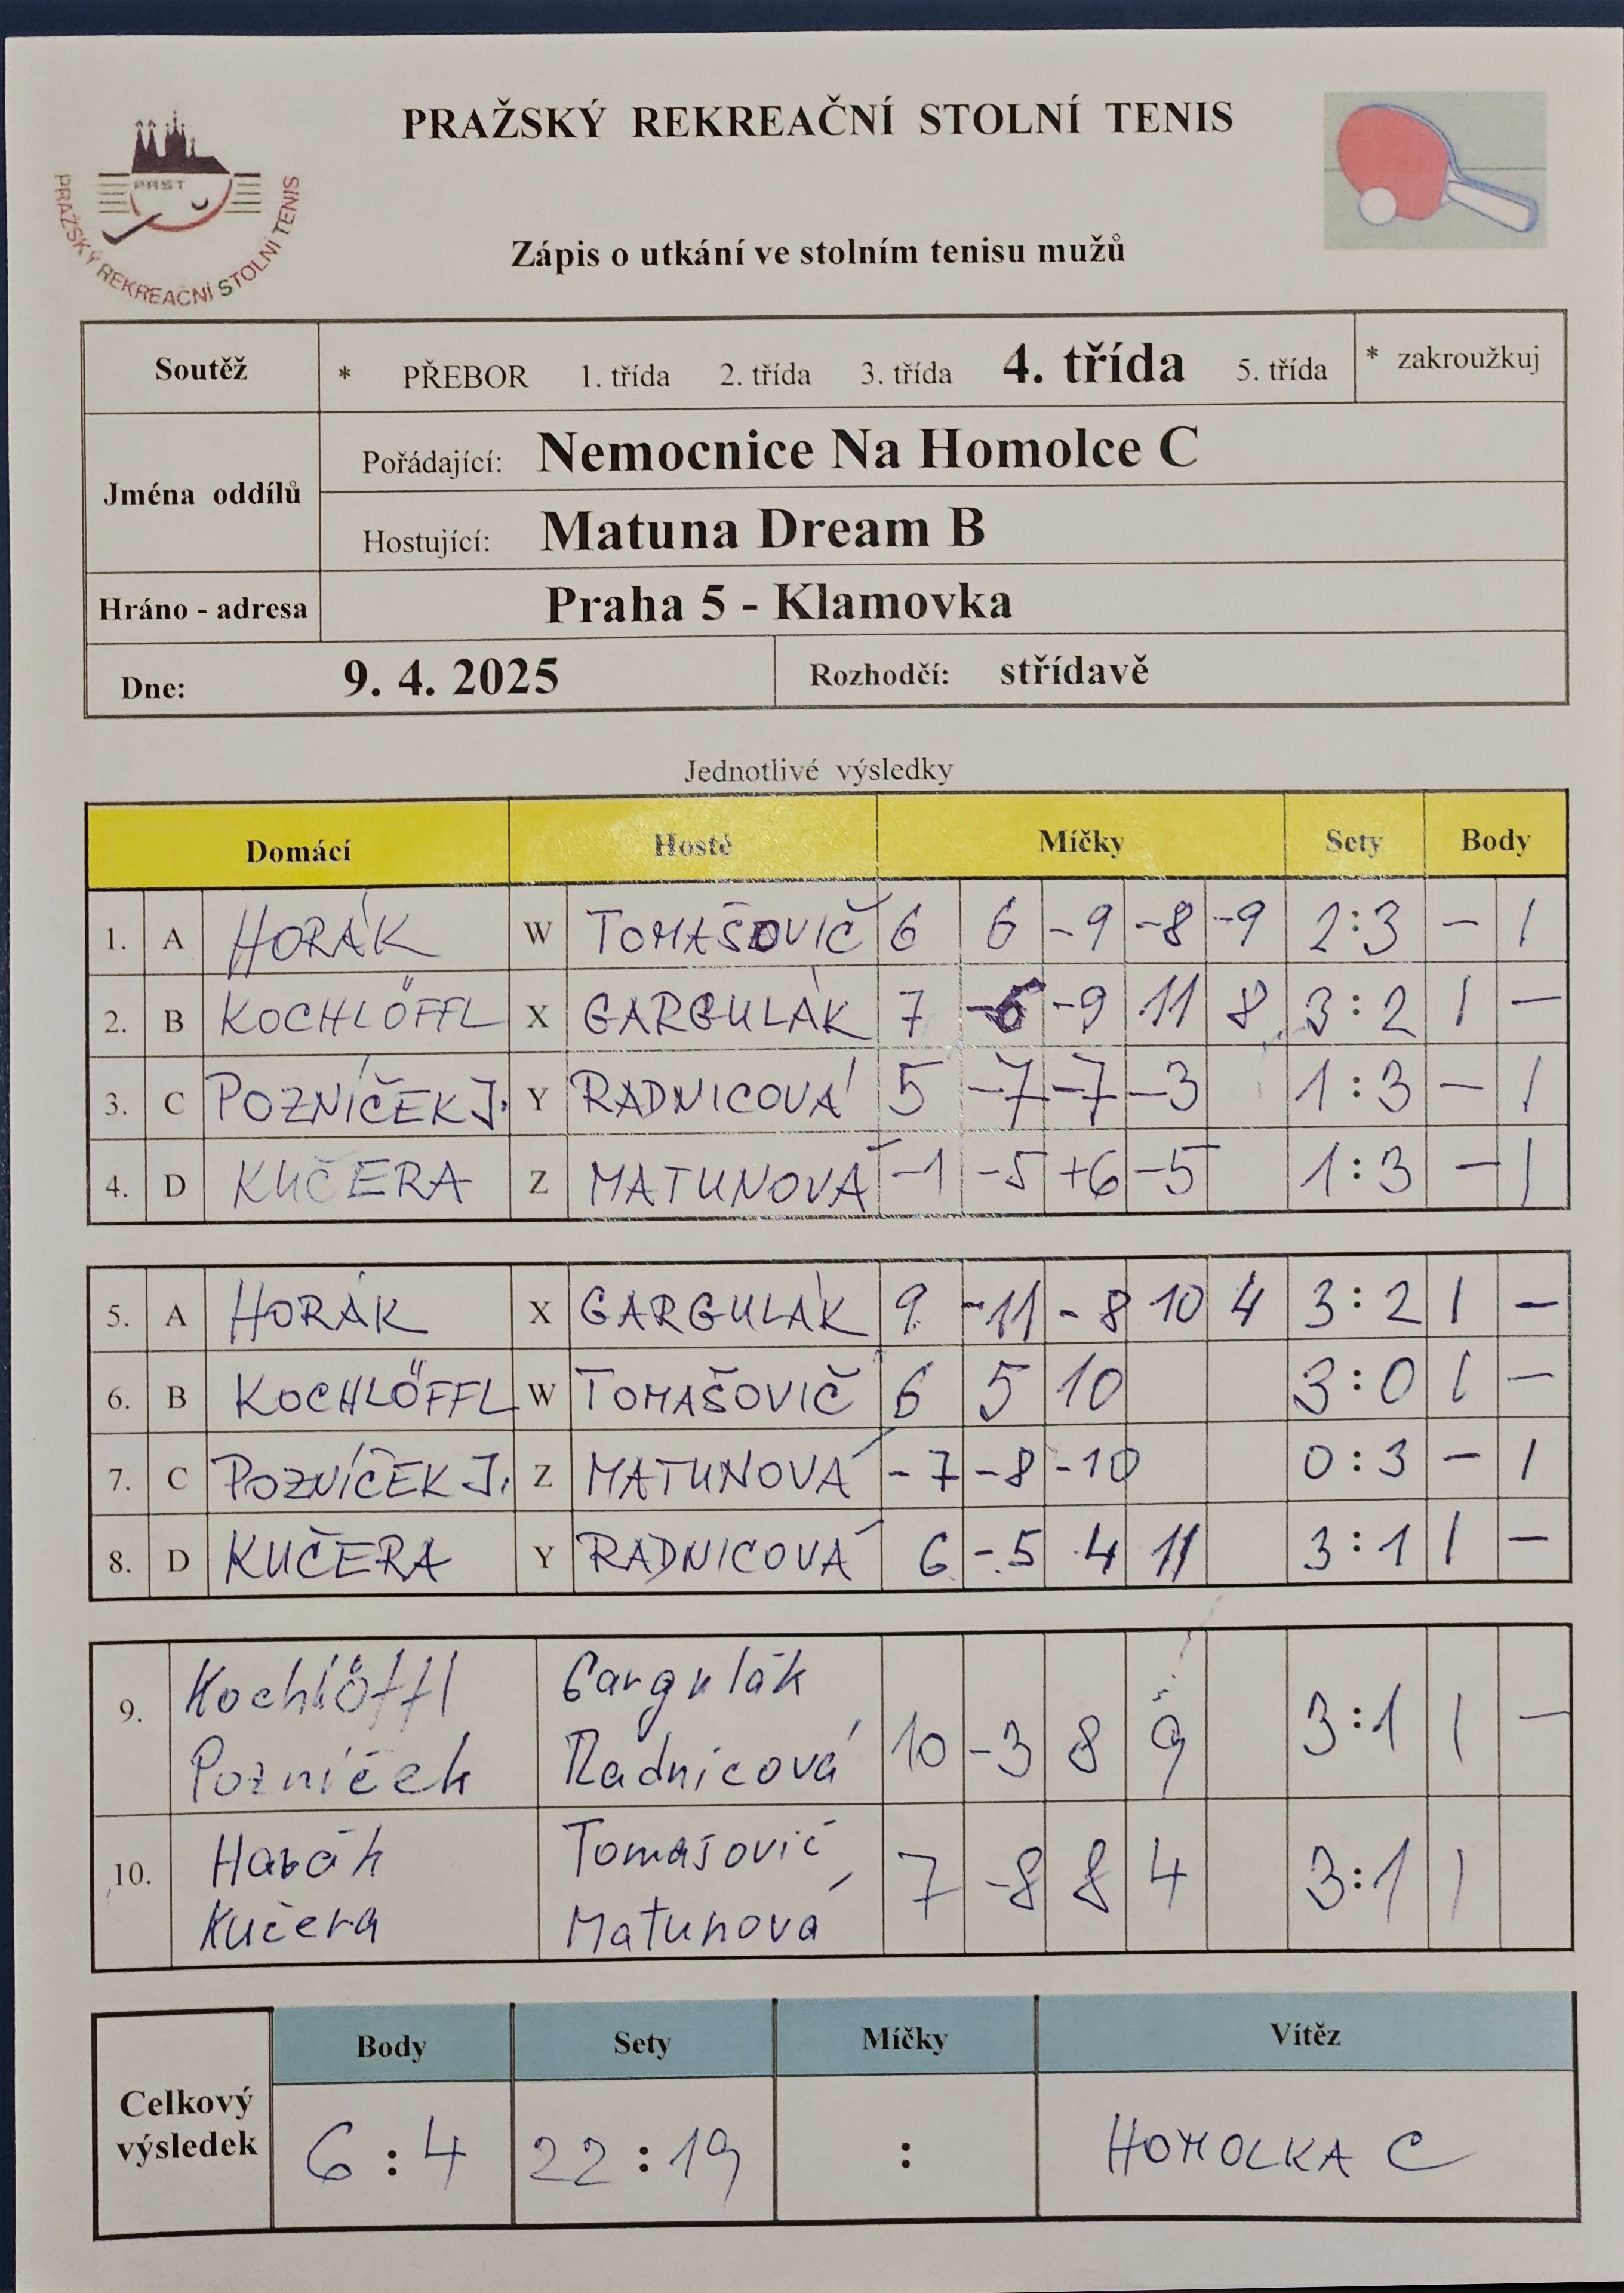 PRAŽSKÝ REKREAČNÍ STOLNÍ TENIS
PRST
PRAŽSKÝ REKREAČNÍ STOLNÍ TENIS
Zápis o utkání ve stolním tenisu mužů
Soutěž * PŘEBOR 1. třída 2. třída 3. třída 4. třída 5. třída * zakroužkuj
Jména oddílů
Pořádající: Nemocnice Na Homolce C
Hostující: Matuna Dream B
Hráno - adresa Praha 5 - Klamovka
Dne: 9. 4. 2025 Rozhodčí: střídavě
Jednotlivé výsledky
Domácí Hosté Míčky Sety Body
1. A HORÁK W TOMAŠOVIČ 6 6 -9 -8 -9 2:3 - 1
2. B KOCHLÖFFL X GARGULÁK 7 -6 -9 11 8 3:2 1 -
3. C POZNÍČEK J. Y RADNICOVÁ 5 -7 -7 -3 1:3 - 1
4. D KUČERA Z MATUNOVÁ -1 -5 +6 -5 1:3 - 1
5. A HORÁK X GARGULÁK 9 -11 -8 10 4 3:2 1 -
6. B KOCHLÖFFL W TOMAŠOVIČ 6 5 10 3:0 1 -
7. C POZNÍČEK J. Z MATUNOVÁ -7 -8 -10 0:3 - 1
8. D KUČERA Y RADNICOVÁ 6 -5 4 11 3:1 1 -
9. Kochlöffl Gargulák
Pozníček Radnicová 10 -3 8 9 3:1 1 -
10. Horák Tomašovič
Kučera Matunová 7 -8 8 4 3:1 1
Body Sety Míčky Vítěz
Celkový výsledek 6:4 22:19 : HOMOLKA C